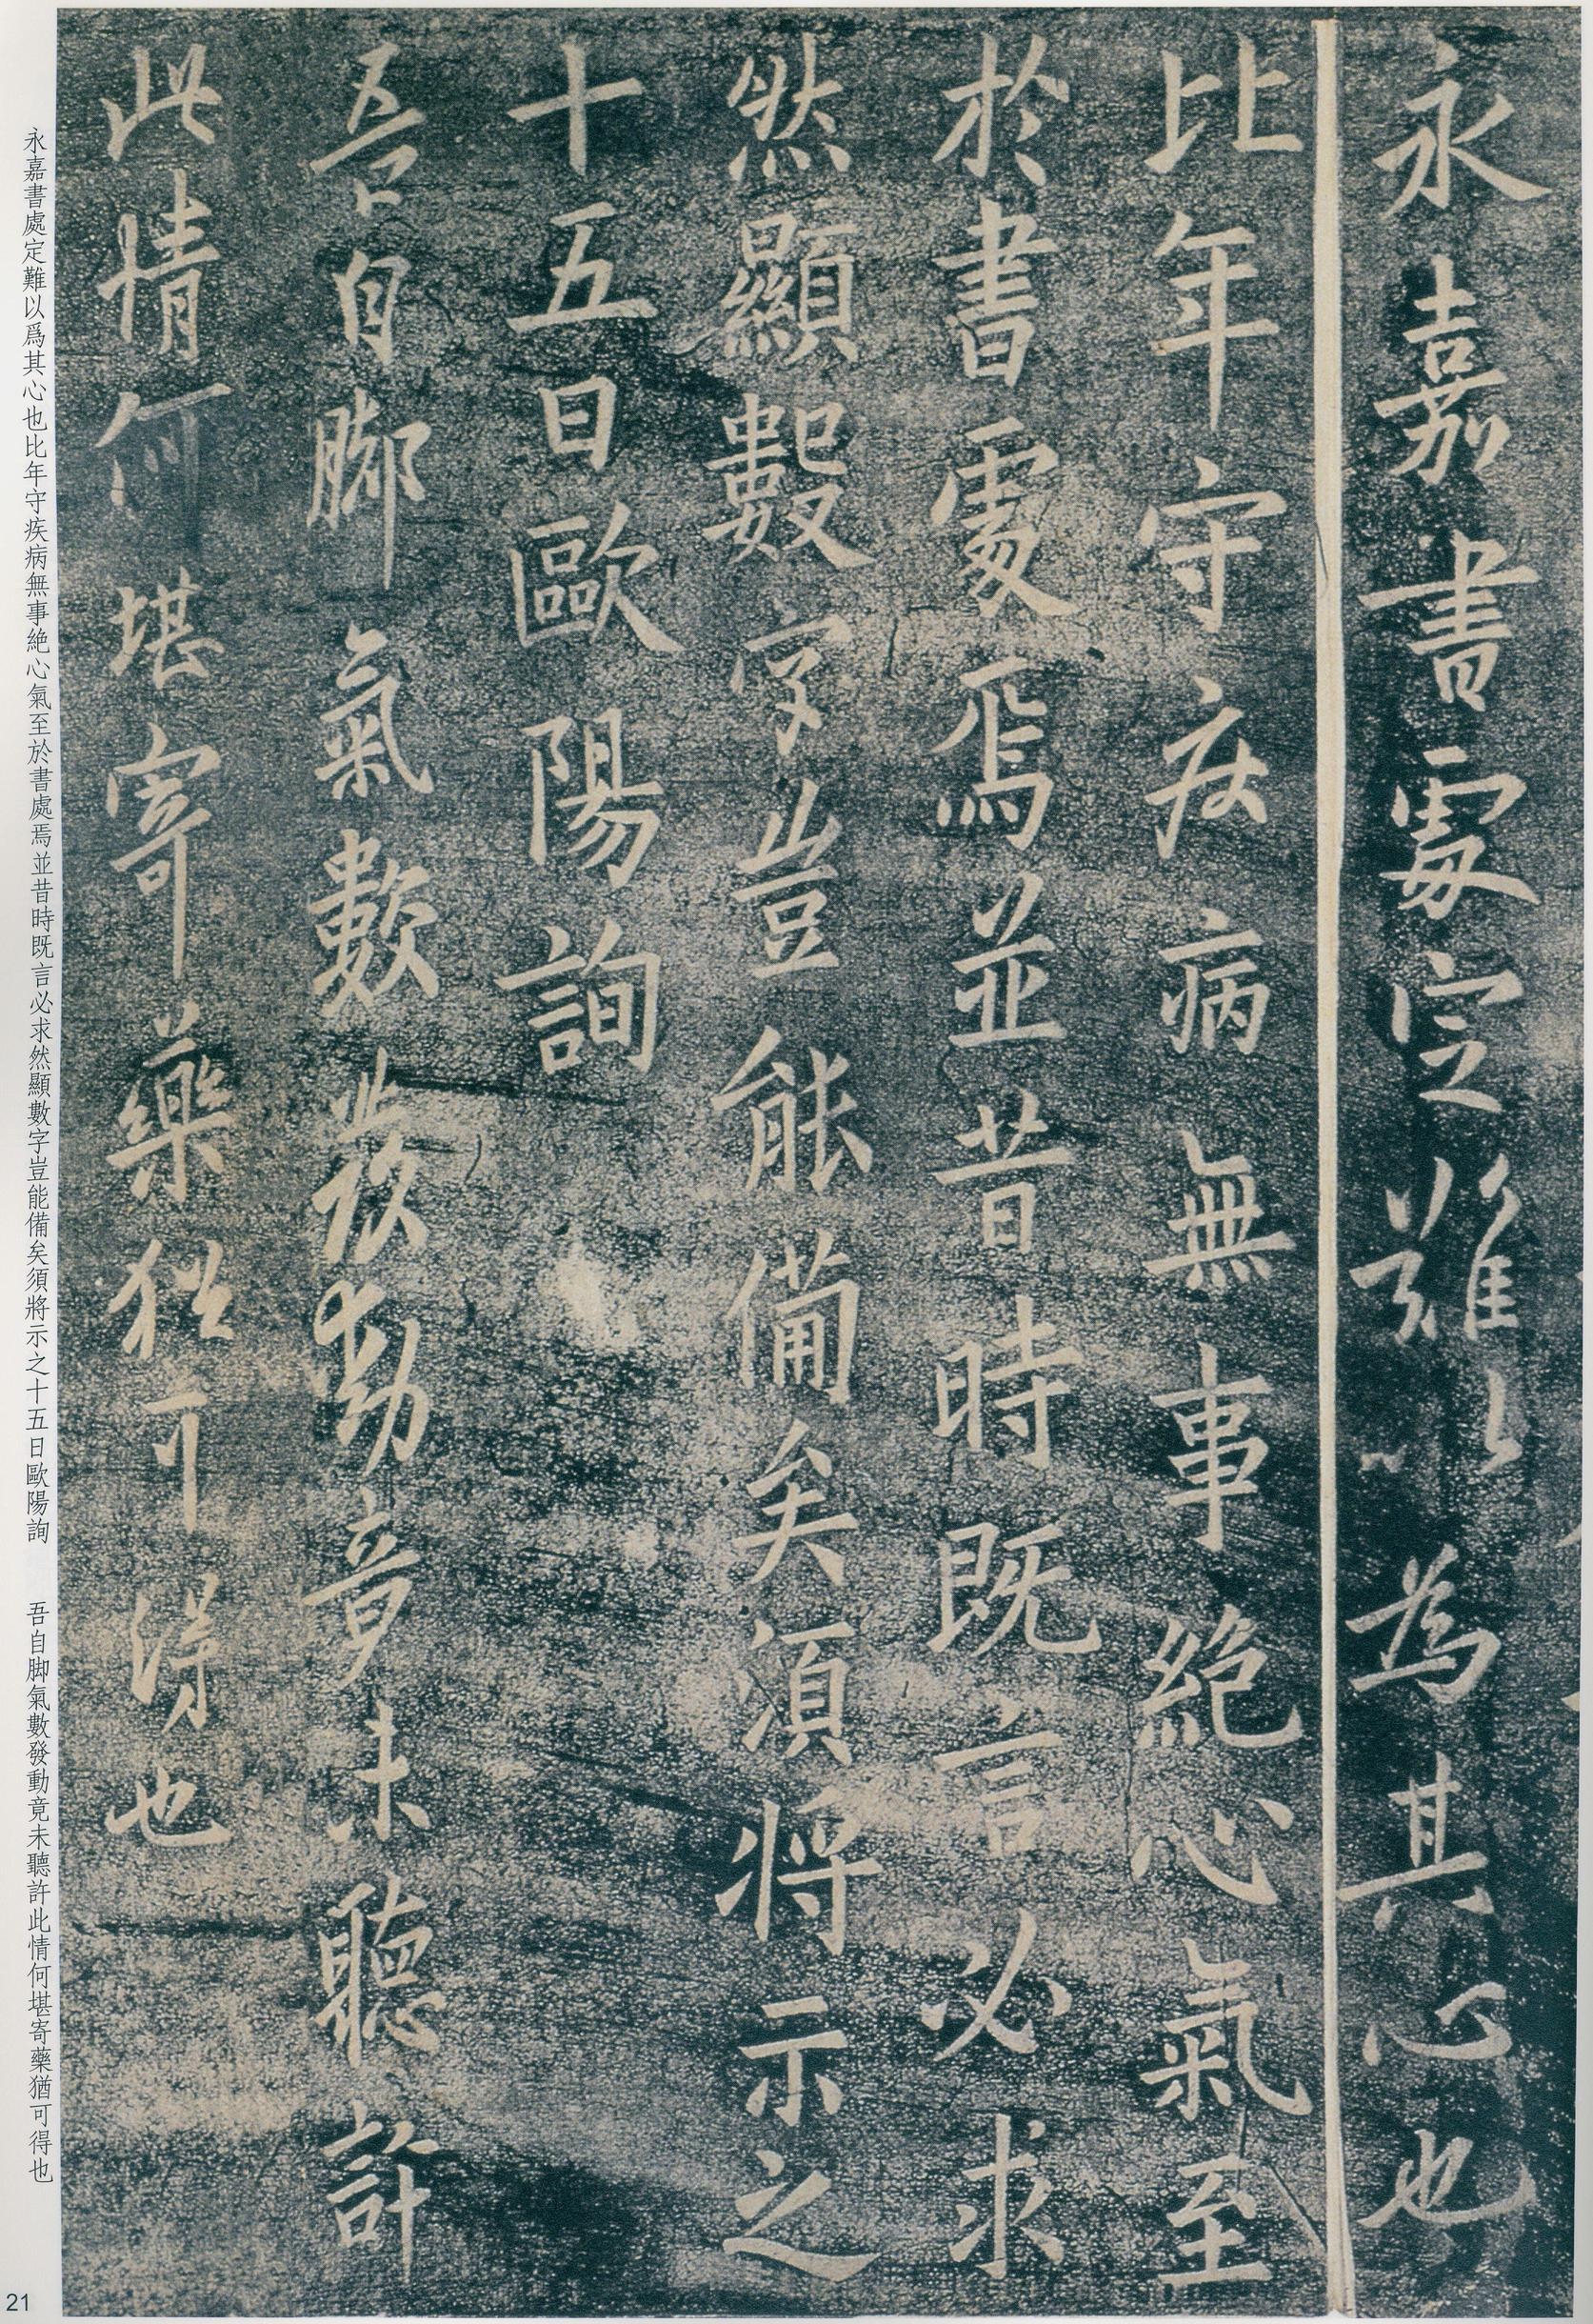 永嘉書處定難以為其心也
比年守疾病無事絕心氣至
於書處焉並昔時既言必求
然顯數字豈能備矣須將示之
十五日歐陽詢
吾自脚氣數發動竟未聽許
此情何堪寄藥猶可得也
永嘉書處定難以爲其心也比年守疾病無事絶心氣至於書處焉並昔時既言必求然顯數字豈能備矣須將示之十五日歐陽詢 吾自脚氣數發動竟未聽許此情何堪寄藥猶可得也
21